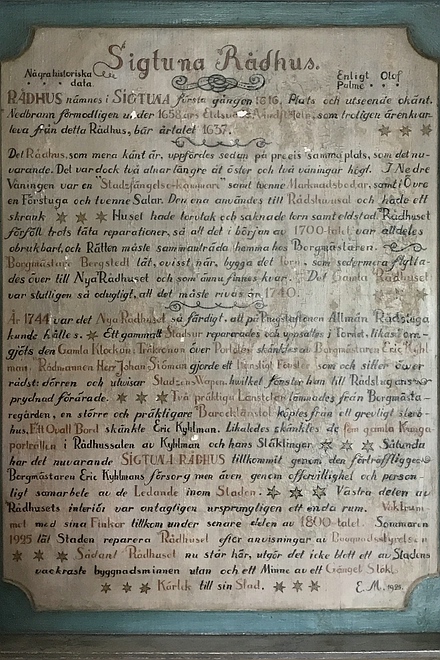 Sigtuna Rådhus.
Några historiska data.
Enligt Olof Palme
RÅDHUS nämnes i SIGTUNA första gången 1316. Plats och utseende okänt.
Nedbrann förmodligen under 1658 års Eldsvåda. som troligen är en kvar-
leva från detta Rådhus, bär årtalet 1637.
Det Rådhus, som mera känt är, uppfördes sedan på precis samma plats, som det nu-
varande. Det var dock två alnar längre åt öster och två våningar högt. I Nedre
Våningen var en Stadsfängelse-kammare samt tvenne Marknadsbodar, samt i Övre
en Förstuga och tvenne Salar. Den ena användes till Rådshussal och hade ett
skrank Huset hade torvtak och saknade torn samt eldstad. Rådhuset
förföll trots täta reparationer, så att det i början av 1700-talet var alldeles
obrukbart, och Rätten måste sammanträda hemma hos Borgmästaren.
Borgmästare Bergstedt lät, ovisst när, bygga det Torn, som sedermera flytta-
des över till Nya Rådhuset och som ännu finnes kvar. Det Gamla Rådhuset
var slutligen så odugligt, att det måste rivas år 1740.
År 1744 var det Nya Rådhuset så färdigt, att på Allmän Rådstuga
kunde hålles. Ett gammalt Stadsur reparerades och uppsattes i Tornet, likaså om-
gjöts den Gamla Klockan. Träkronan över Portalen skänktes av Borgmästaren Eric Kyhl
man. Rådmannen Herr Johan Sidman gjorde ett konstigt Fönster som och sitter över
rådst: dörren och utvisar Stadzens Wapen, hvilket fönster han till Rådstugans
prydnad förärade. Två präktiga Länstolar lämnades från Borgmästa-
regården, en större och präktigare Barocklänstol köptes från ett grevligt sterb-
hus. Ett Ovalt Bord skänkte Eric Kyhlman. Likaledes skänktes de fem gamla Kunga
porträtten i Rådhussalen av Kyhlman och hans Släktingar. Sålunda
har det nuvarande SIGTUNA RÅDHUS tillkommit genom den förträfflige
Borgmästaren Eric Kyhlmans försorg men även genom offervillighet och person-
ligt samarbete av de Ledande inom Staden. Västra delen av
Rådhusets interiör var antagligen ursprungligen ett enda rum. Väktrum-
met med sina Finkor tillkom under senare delen av 1800-talet. Sommaren
1925 lät Staden reparera Rådhuset efter anvisningar av Byggnadsstyrelsen
Sådant Rådhuset nu står här, utgör det icke blott ett av Stadens
vackraste byggnadsminnen utan och ett Minne av ett Gånget Släkt-
Kärlek till sin Stad. E.M. 1925.